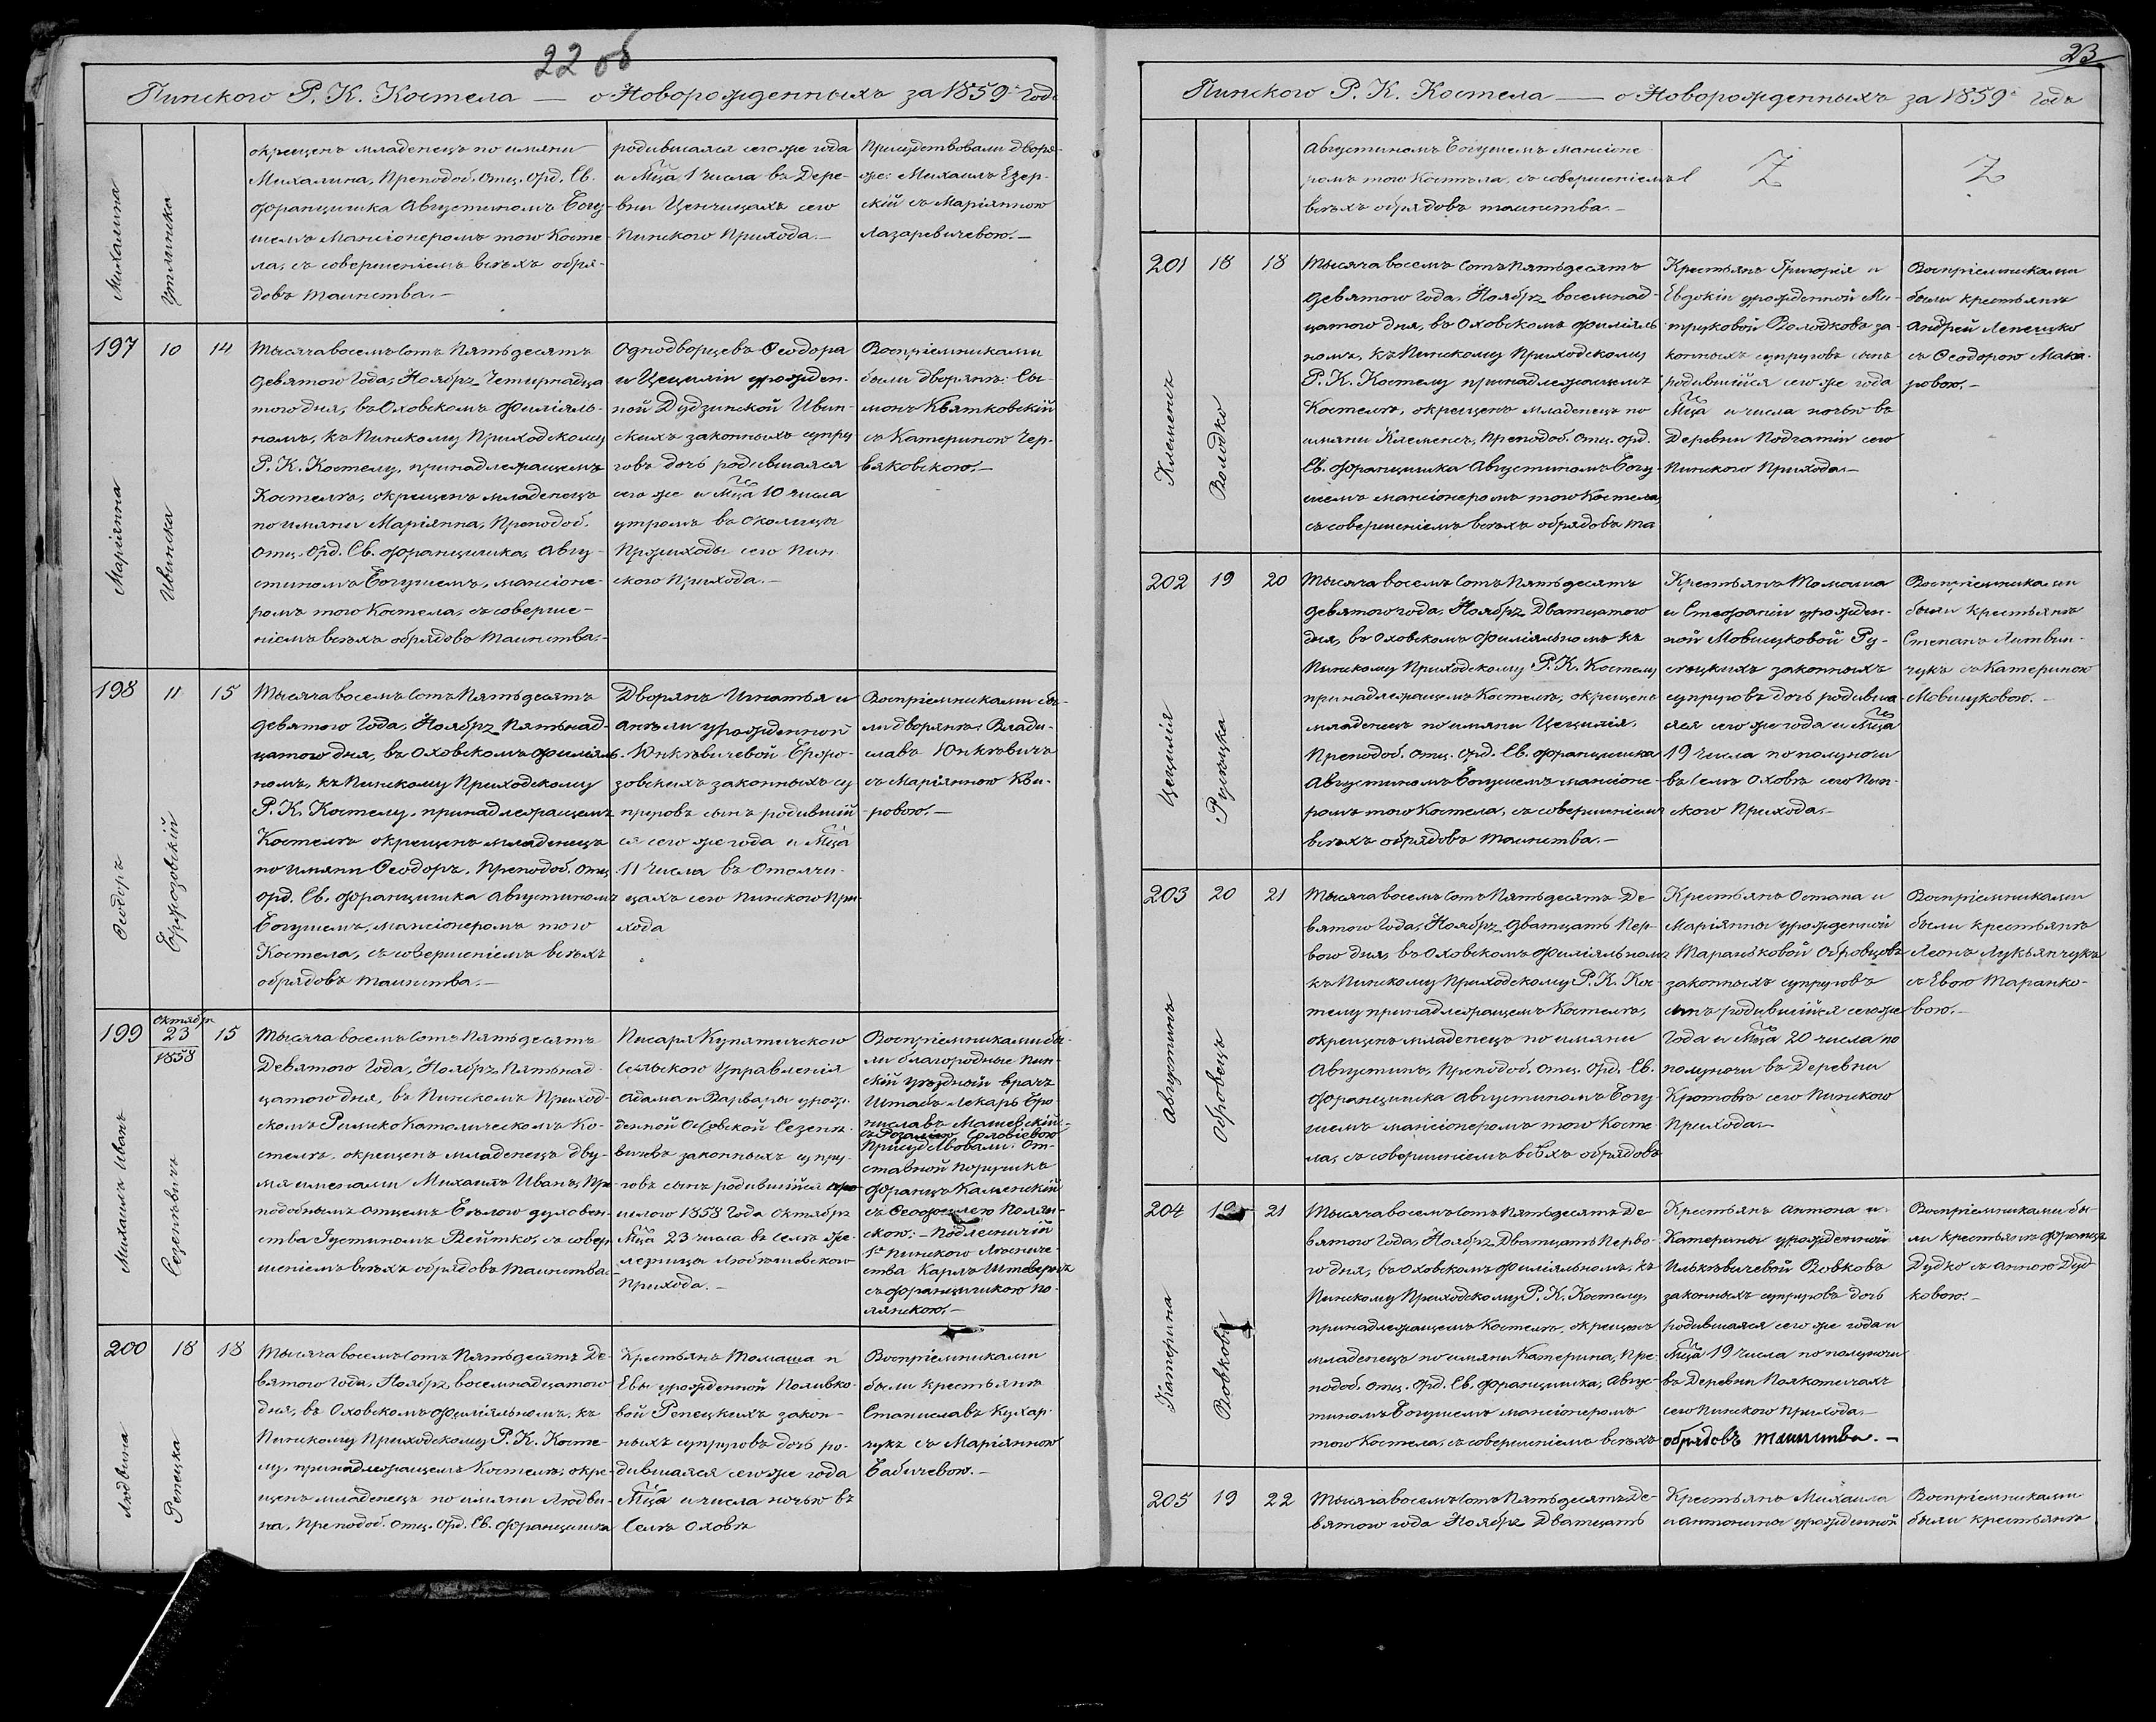 22 об
Пинского Р. К. Костела — о Новорожденныхъ за 1859й Годъ
Михалина
Утлинска
окрещенъ младенецъ по имяни
Михалина, Преподоб. отц. Орд. Св.
Франциишка Августиномъ Богу-
шемъ Мансіонеромъ того Косте-
ла, съ совершеніемъ всѣхъ обря-
довъ таинства.—
родившаяся сего же года
и Мца 1 числа въ Дере-
вни Ценчицахъ сего
Пинского Прихода.—
Присудствовали дворя-
же: Михаилъ Езер-
скій съ Маріянною
Лазаревичевою.—
197
10
14
Маріянна
Ивинска
Тысяча восемь Сотъ Пятьдесятъ
девятого Года, Ноября Четырнадца
того дня, въ Оховскомъ Филіяль-
номъ, къ Пинскому Приходскому
Р. К. Костелу, принадлежащемъ
Костелѣ, окрещенъ младенецъ
по имяни Маріянна, Преподоб.
отц. Орд. Св. Франциишка, Авгу-
стиномъ Богушемъ, мансіоне-
ромъ того Костела, съ соверше-
ніемъ всѣхъ обрядовъ таинства.—
Однодворцевъ Ѳеодора
и Цециліи урожден-
ной Дудзинской Ивин-
скихъ законныхъ супру
говъ дочь родившаяся
сего же и Мца 10 числа
утромъ въ Околицы
сего Пин
ского Прихода.—
Воспріемниками
были дворянѣ: Сы-
монъ Квятковскій
съ Катериною Чер-
вяковскою.—
198
11
15
Ѳеодоръ
Ержозовскій
Тысяча восемь Сотъ Пятьдесятъ
девятого Года, Ноября Пятьнад-
цатого дня, въ Оховскомъ Филіяль-
номъ, къ Пинскому Приходскому
Р. К. Костелу, принадлежащемъ
Костелѣ окрещенъ младенецъ
по имяни Ѳеодоръ, Преподоб. отц
Орд. Св. Франциишка Августиномъ
Богушемъ, мансіонеромъ того
Костела, съ совершеніемъ всѣхъ
обрядовъ таинства.—
Дворянъ Игнатья и
Анѣли урожденной
Юнкѣвичевой Ержо-
зовскихъ законныхъ су
пруговъ сынъ родившій
ся сего же года и Мца
11 числа въ Стоячи-
цахъ сего Пинского При-
хода
Воспріемниками бы-
ли дворянѣ: Влади-
славъ Юнкѣвичъ
съ Маріянною Кви-
ровою.—
199
Октября
23
1858
15
Михаилъ Иванъ
Сезенѣвичъ
Тысяча восемь Сотъ Пятьдесятъ
Девятого Года, Ноября Пятьнад-
цатого дня, въ Пинскомъ Приход-
скомъ Римско Католическомъ Ко-
стелѣ, окрещенъ младенецъ дву-
мя именами Михаилъ Иванъ, Пре
подобнымъ отцемъ Бѣлого духовен-
ства Густиномъ Вейтко, съ совер
шеніемъ всѣхъ обрядовъ таинства.
Писаря Купятичского
Сельского Управленія
Адама и Варвары урож-
денной Сезенѣ-
вичовъ законныхъ супру-
говъ сынъ родившійся про
шлого 1858 Года Октября
Мца 23 числа въ Селѣ Же-
лезница Любѣшевского
Прихода.—
Воспріемниками бы-
ли благородные Пин-
скій уѣздный врачъ
Штабъ Лекарь Бро
ниславъ Машевскій
съ Розаліею Соловіевою
Присудствовали: От-
ставной Поручикъ
Францъ Каменскій
съ Ѳеофилею Полян-
скою.— Подлесничій
1го Пинского Лесниче-
ства Карлъ
съ Франциишкою По-
лянскою.—
200
18
18
Людвина
Репецка
Тысяча восемь Сотъ Пятьдесятъ Де-
вятого Года, Ноября восемнадцатого
дня, въ Оховскомъ Филіяльномъ, къ
Пинскому Приходскому Р. К. Косте-
лу, принадлежащемъ Костелѣ, окре-
щенъ младенецъ по имяни Людви-
на, Преподоб. отц. Орд. Св. Франциишка
Крестьянъ Томаша и
Евы урожденной Поливко-
вой Репецкихъ закон-
ныхъ супруговъ дочь ро-
дившаяся сего же года
Мца и числа ночью въ
Селѣ Оховѣ
Воспріемниками
были крестьянѣ
Станиславъ Кухар-
чукъ съ Маріянною
Бабичевою.—
23
Пинского Р. К. Костела — о Новорожденныхъ за 1859й Годъ
Августиномъ Богушемъ мансіоне
ромъ того Костела, съ совершеніемъ
всѣхъ обрядовъ таинства.—
Z
Z
201
18
18
Клеменсъ
Володко
Тысяча восемь Сотъ Пятьдесятъ
девятого Года, Ноября восемнад-
цатого дня, въ Оховскомъ Филіяль
номъ, къ Пинскому Приходскому
Р. К. Костелу принадлежащемъ
Костелѣ, окрещенъ младенецъ по
имяни Клеменсъ, Преподоб. отц. Орд.
Св. Франциишка Августиномъ Богу
шемъ мансіонеромъ того Костела,
съ совершеніемъ всѣхъ обрядовъ та
Крестьянъ Григорія и
Евдокіи урожденной Ми-
труковой Володковъ за-
конныхъ супруговъ сынъ
родившійся сего же года
Мца и числа ночью въ
Деревни Подгатіи сего
Пинского Прихода.—
Воспріемниками
были крестьянѣ
Андрей Лепешко
съ Ѳеодорою Мака-
ровою.—
202
19
20
Цецилія
Русѣцка
Тысяча восемь Сотъ Пятьдесятъ
девятого года, Ноября Дватцатого
дня, въ Оховскомъ Филіяльномъ къ
Пинскому Приходскому Р. К. Костелу
принадлежащемъ Костелѣ, окрещенъ
младенецъ по имяни Цецилія,
Преподоб. отц. Орд. Св. Франциишка
Августиномъ Богушемъ мансіоне-
ромъ того Костела, съ совершеніемъ
всѣхъ обрядовъ таинства.—
Крестьянъ Томаша
и Стефаніи урожден-
ной Мовшуковой Ру-
сѣцкихъ законныхъ
супруговъ дочь родивша
яся сего же года и Мца
19 числа по полуночи
въ Селѣ Оховѣ сего Пин-
ского Прихода.—
Воспріемниками
были крестьянѣ
Степанъ Литвин-
чукъ съ Катериною
Мовшуковою.—
203
20
21
Августинъ
Обровецъ
Тысяча восемь Сотъ Пятьдесятъ Де-
вятого Года, Ноября дватцать Пер-
вого дня, въ Оховскомъ Филіяльномъ
къ Пинскому Приходскому Р. К. Кос-
телу принадлежащемъ Костелѣ,
окрещенъ младенецъ по имяни
Августинъ, Преподоб. отц. Орд. Св.
Франциишка Августиномъ Богу-
шемъ мансіонеромъ того Косте
ла, съ совершеніемъ всѣхъ обрядовъ
Крестьянъ Остапа и
Маріянны урожденной
Тараньковой Обровцовъ
законныхъ супруговъ
сынъ родившійся сего же
Года и Мца 20 числа по
полуночи въ Деревни
Кротовѣ сего Пинского
Прихода.—
Воспріемниками
были крестьянѣ
Леонъ Лукьянчукъ
съ Евою Таранко-
вою.—
204
19
21
Катерина
Вовковъ
Тысяча восемь Сотъ Пятьдесятъ Де-
вятого Года, Ноября Дватцать Перво-
го дня, въ Оховскомъ Филіяльномъ, къ
Пинскому Приходскому Р. К. Костелу,
принадлежащемъ Костелѣ, окрещенъ
младенецъ по имяни Катерина, Пре-
подоб. отц. Орд. Св. Франциишка, Авгус-
тиномъ Богушемъ мансіонеромъ
того Костела, съ совершеніемъ всѣхъ
обрядовъ таинства.—
Крестьянъ Антона и
Катерины урожденной
Илькѣвичевой Вовковъ
законныхъ супруговъ дочь
родившаяся сего же года и
Мца 19 числа по полуночи
въ Деревни Полкотичахъ
сего Пинского Прихода.—
Воспріемниками бы-
ли крестьянѣ Францъ
Дудко съ Анною Дуд
ковою.—
205
19
22
Тысяча восемь Сотъ Пятьдесятъ Де-
вятого года Ноября Дватцать
Крестьянъ Михаила
и Антонины урожденной
Воспріемниками
были крестьянѣ